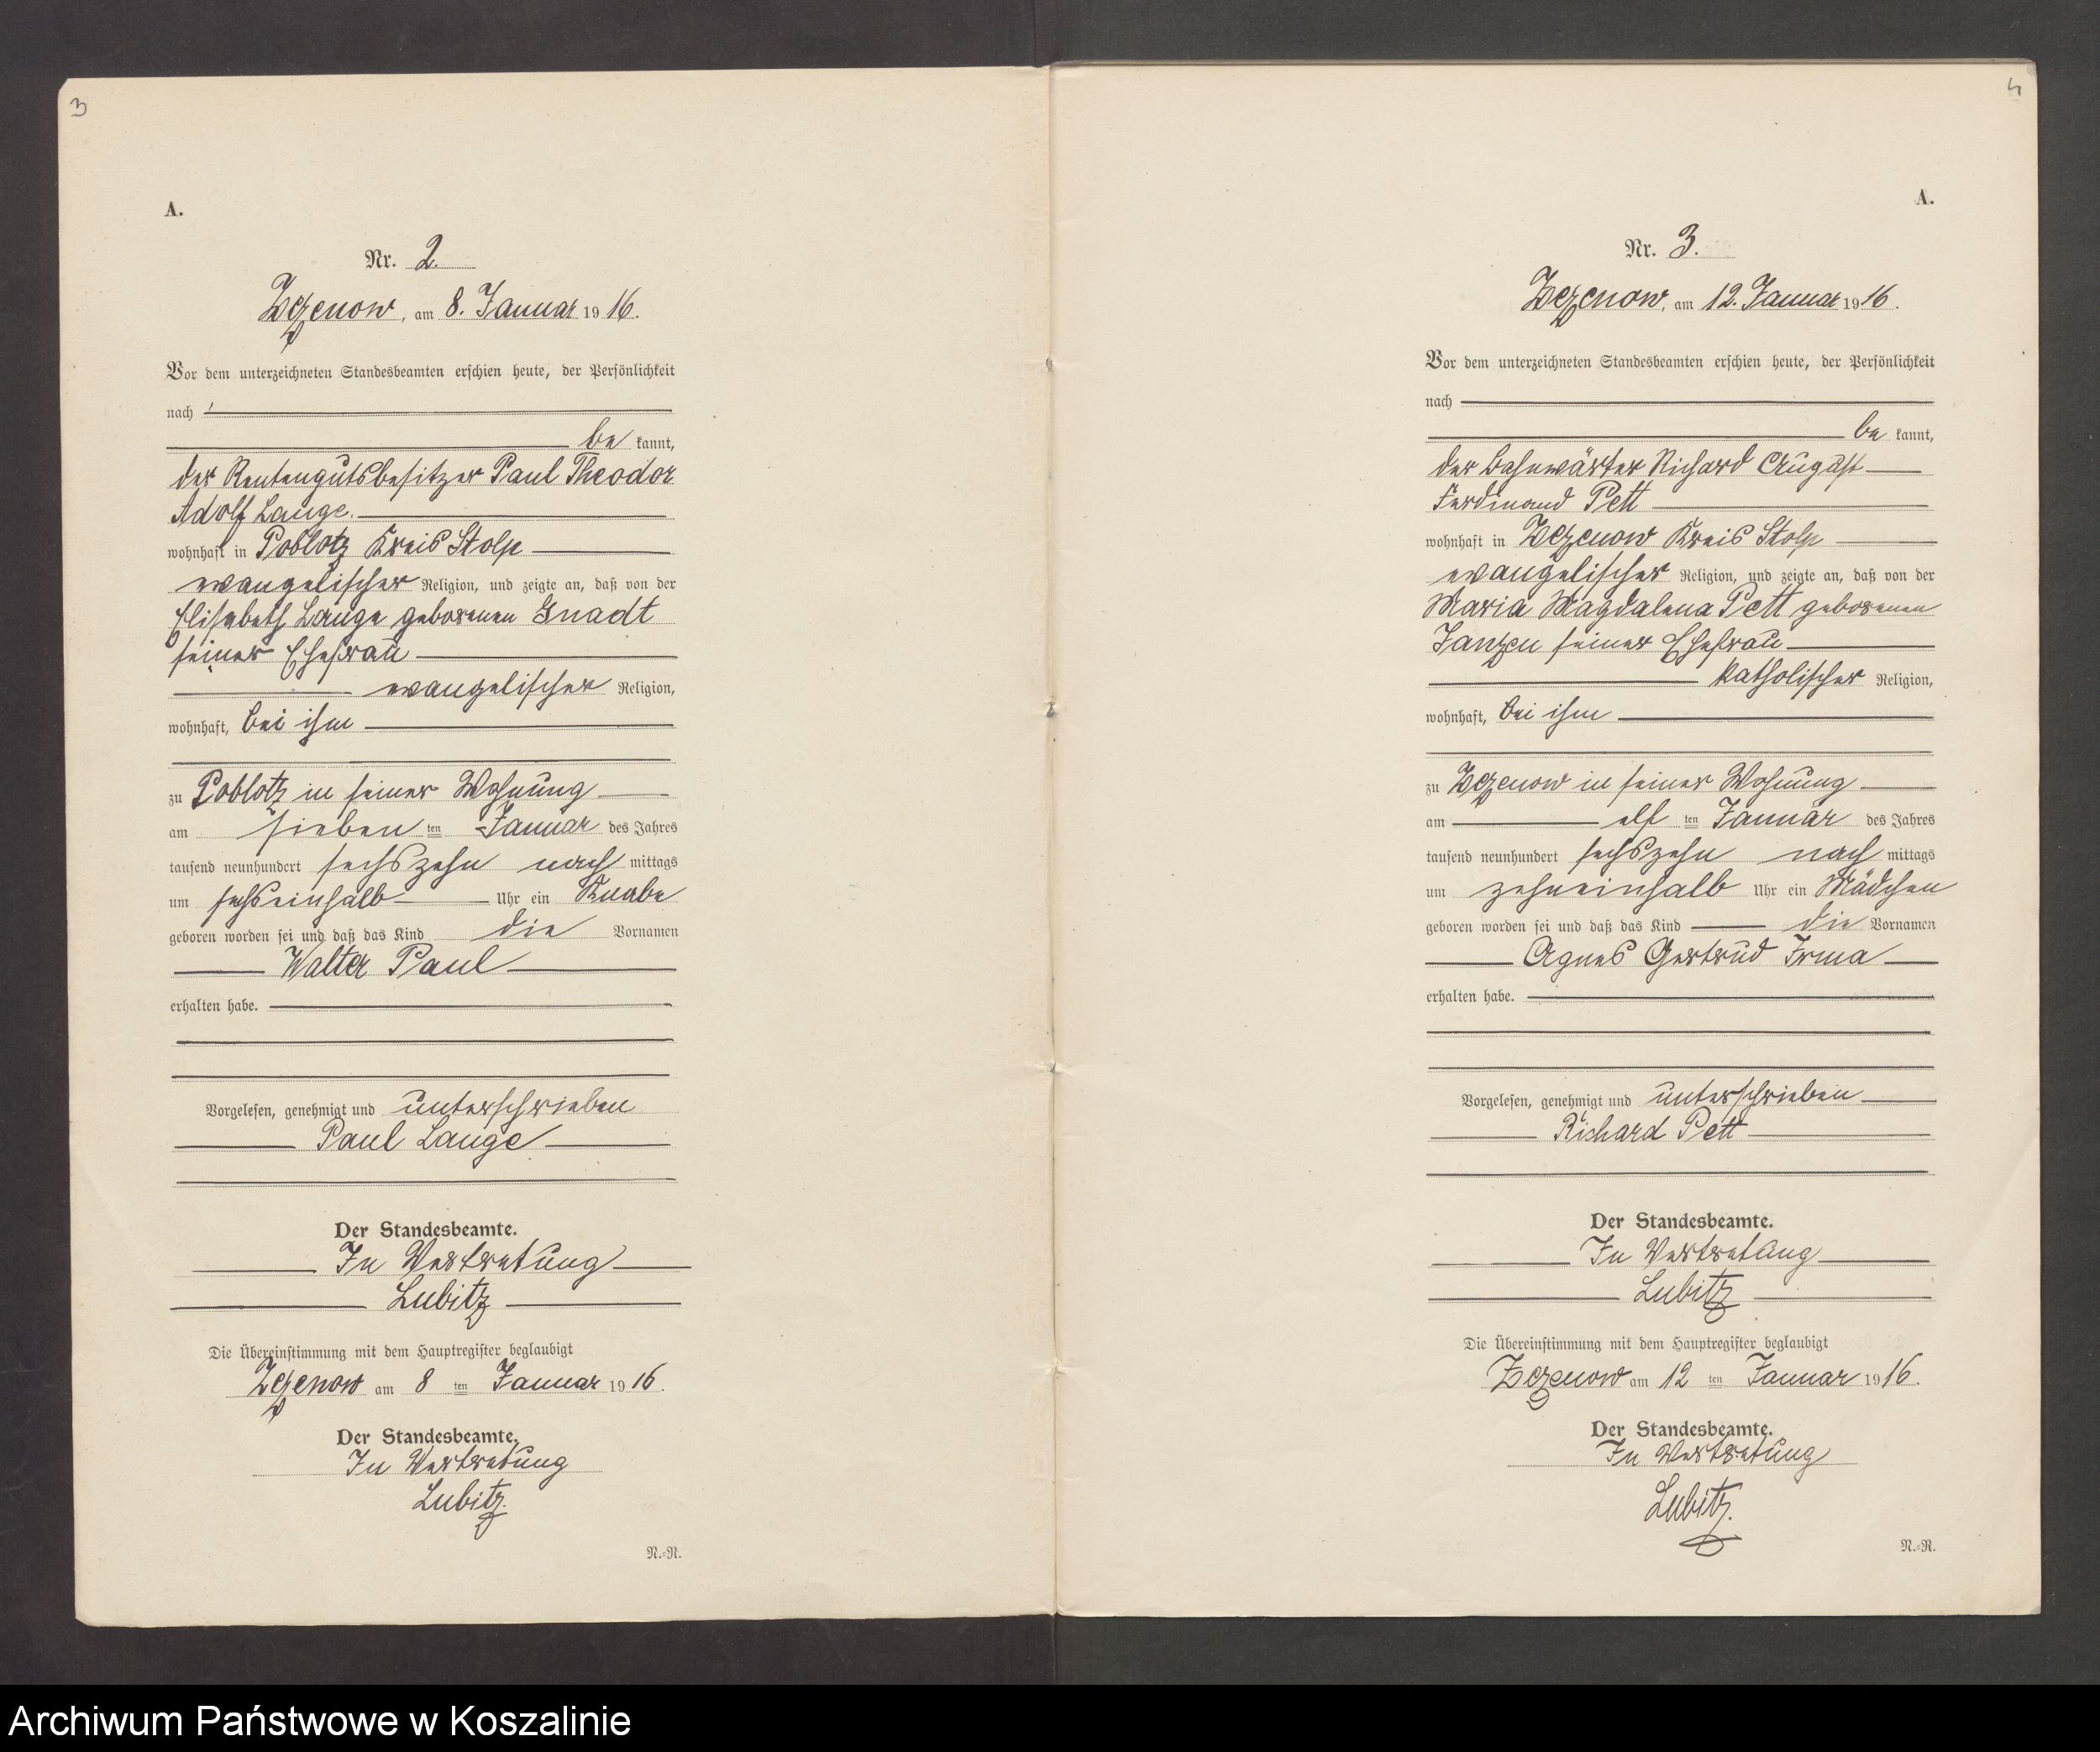 3
A.
Nr. 2.
Zezenow, am 8. Januar 1916.
Vor dem unterzeichneten Standesbeamten erschien heute, der Persönlichkeit
nach
be kannt,
der Rentengutsbesitzer Paul Theodor
Adolf Lange.
wohnhaft in Poblotz Kreis Stolp
evangelischer Religion, und zeigte an, daß von der
Elisabeth Lange geborenen Gnadt
seiner Ehefrau
evangelischer Religion,
wohnhaft, bei ihm
zu Poblotz in seiner Wohnung
am sieben ten Januar des Jahres
tausend neunhundert sechszehn nach mittags
um sechseinhalb Uhr ein Knabe
geboren worden sei und daß das Kind die Vornamen
Walter Paul
erhalten habe.
Vorgelesen, genehmigt und unterschrieben
Paul Lange
Der Standesbeamte.
In Vertretung
Lubitz
Die Übereinstimmung mit dem Hauptregister beglaubigt
Zezenow am 8 ten Januar 1916.
Der Standesbeamte.
In Vertretung
Lubitz.
N.=R.
4
A.
Nr. 3.
Zezenow, am 12. Januar 1916.
Vor dem unterzeichneten Standesbeamten erschien heute, der Persönlichkeit
nach
be kannt,
der Bahnwärter Richard August
Ferdinand Pett
wohnhaft in Zezenow Kreis Stolp
evangelischer Religion, und zeigte an, daß von der
Maria Magdalena Pett geborenen
Janzen seiner Ehefrau
katholischer Religion,
wohnhaft, bei ihm
zu Zezenow in seiner Wohnung
am elf ten Januar des Jahres
tausend neunhundert sechszehn nach mittags
um zehneinhalb Uhr ein Mädchen
geboren worden sei und daß das Kind die Vornamen
Agnes Gertrud Irma
erhalten habe.
Vorgelesen, genehmigt und unterschrieben
Richard Pett
Der Standesbeamte.
In Vertretung
Lubitz
Die Übereinstimmung mit dem Hauptregister beglaubigt
Zezenow am 12 ten Januar 1916.
Der Standesbeamte.
In Vertretung
Lubitz.
N.=R.
Archiwum Państwowe w Koszalinie